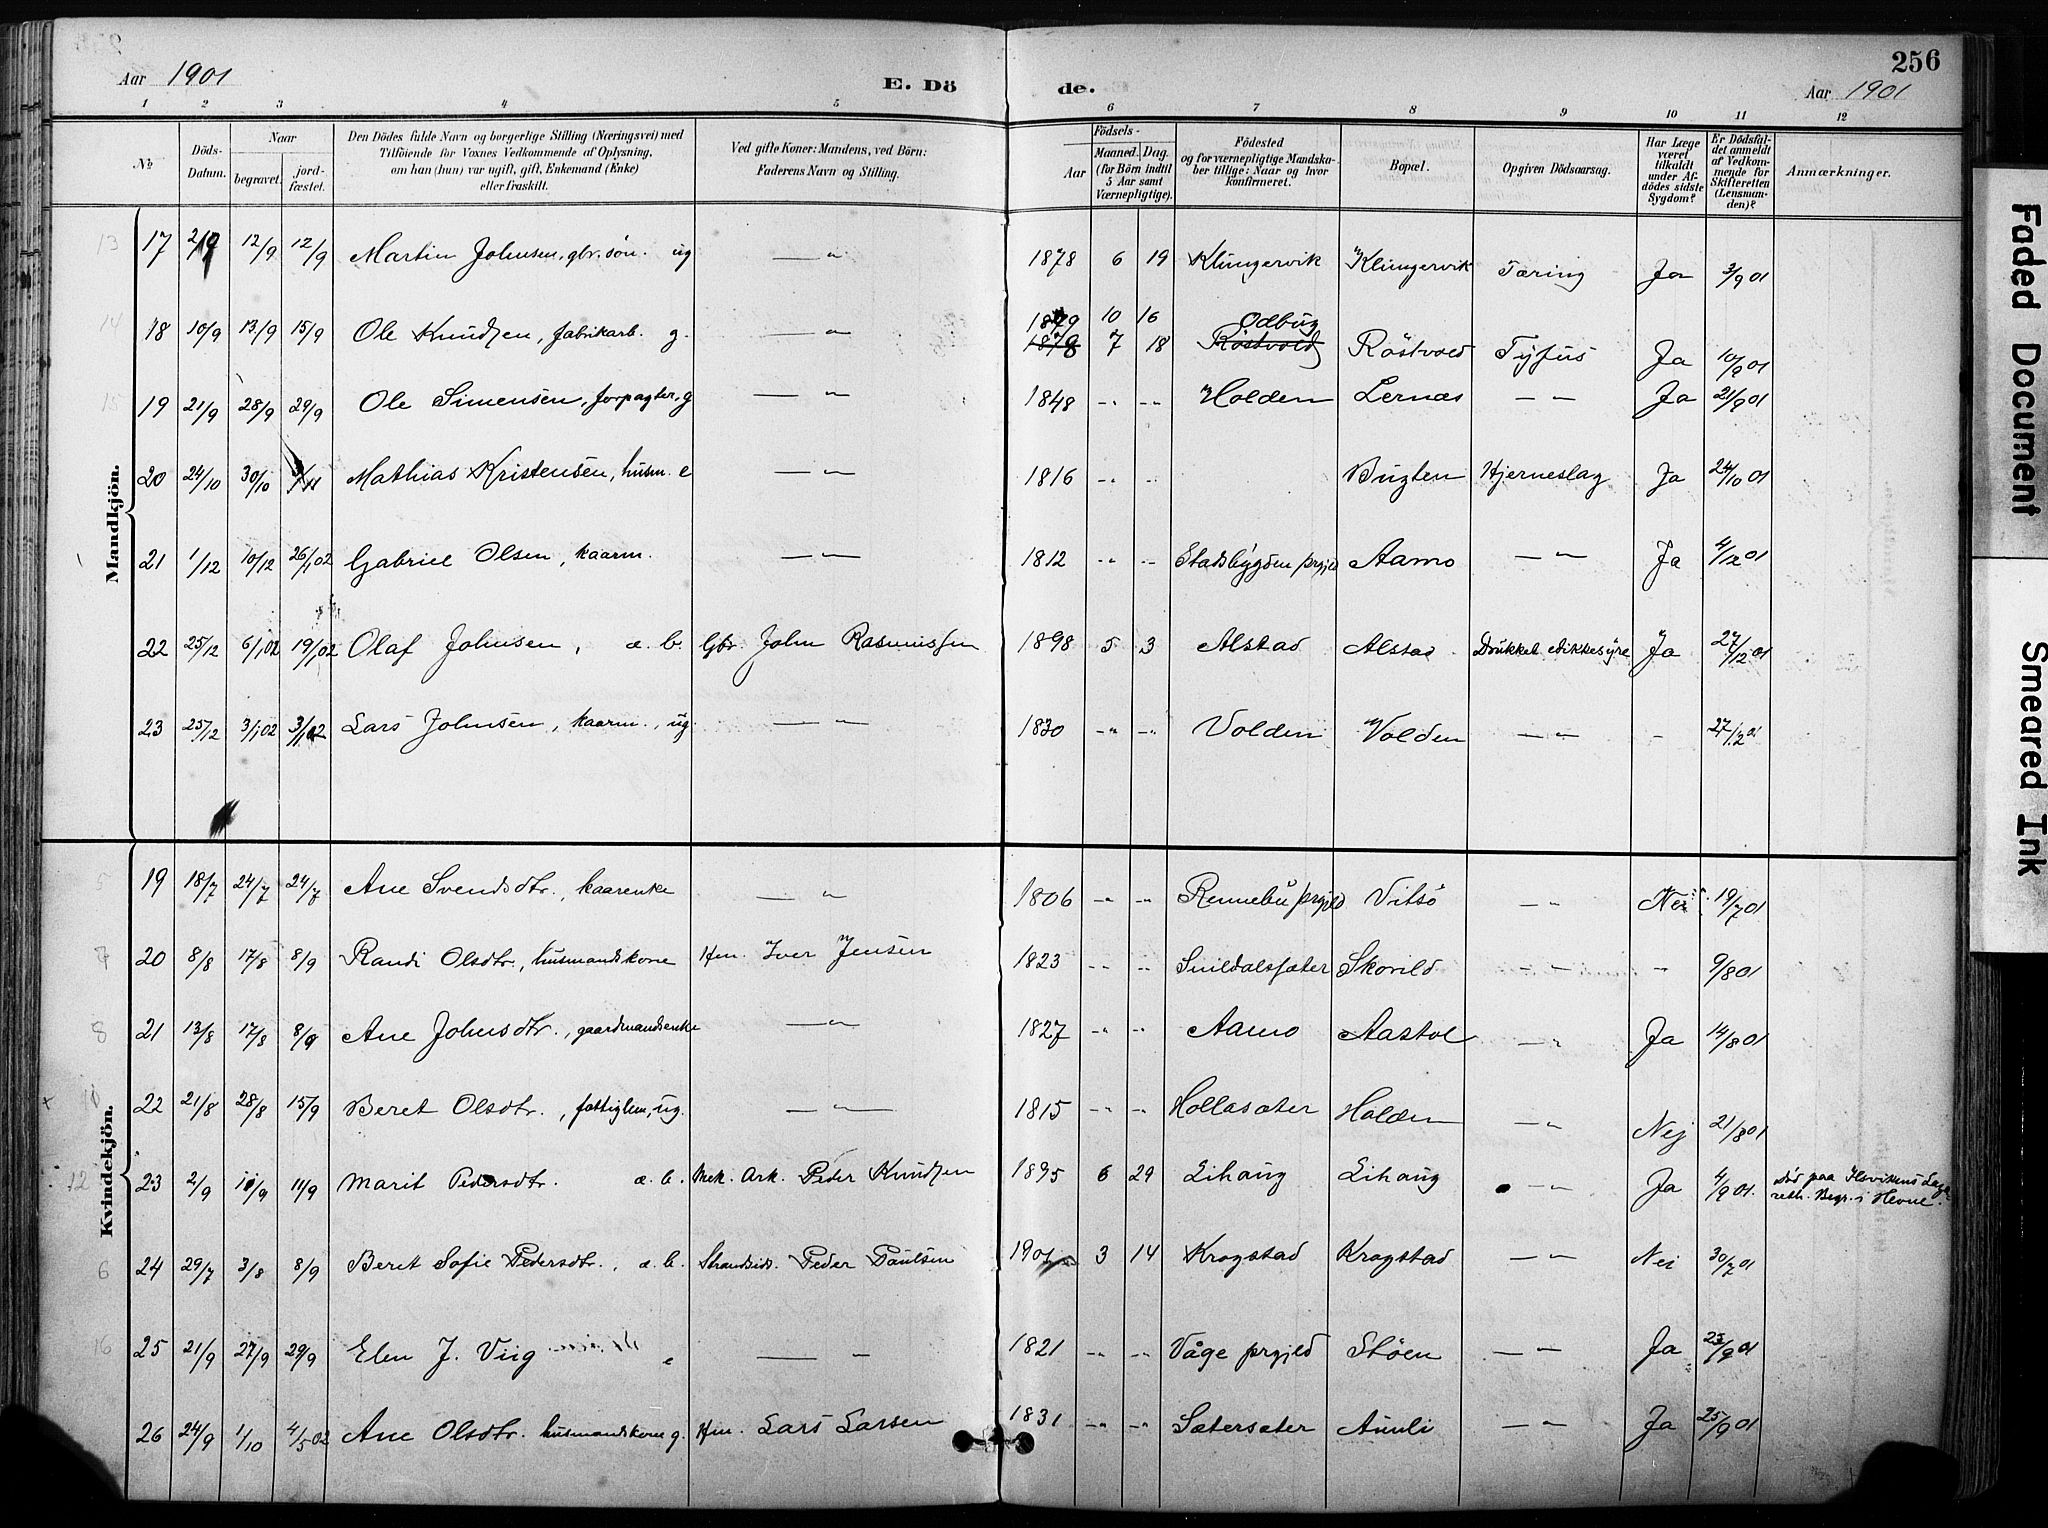 256
Aar 1901 E. Dö de. Aar 1901
1 2 3 4 5 6 7 8 9 10 11 12
No Döds-Datum. Naar begravet. jord-fæstet. Den Dödes fulde Navn og borgerlige Stilling (Næringsvei) med Tilföiende for Voxnes Vedkommende af Oplysning, om han (hun) var ugift, gift, Enkemand (Enke) eller fraskilt. Ved gifte Koner: Mandens, ved Börn: Faderens Navn og Stilling. Födsels- Aar Maaned. Dag. (for Börn indtil 5 Aar samt Værnepligtige). Födested og for værnepligtige Mandska-ber tillige: Naar og hvor Konfirmeret. Bopæl. Opgiven Dödsaarsag. Har Læge været tilkaldt under Af-dödes sidste Sygdom? Er Dödsfal-det anmeldt af Vedkom-mende for Skifteretten (Lensman-den)? Anmærkninger.
Mandkjön.
13 17 2/9 12/9 12/9 Martin Johnsen, gbr. søn. ug —„— 1878 6 19 Klungervik Klungervik Tæring Ja 3/9 01
14 18 10/9 13/9 15/9 Ole Knudsen, fabrikarb. g. —„— 1879 10 16 Odbug
1878 7 18 Röstvold Röstvold Tyfus Ja 10/9 01
15 19 21/9 28/9 29/9 Ole Simensen, forpagter, g —„— 1848 -„- -„- Holden Lernæs —„— Ja 21/9 01
20 24/10 30/10 3/11 Mathias Kristensen, husm. e —„— 1816 -„- -„- Bugten Hjerneslag Ja 24/10 01
21 1/12 10/12 26/1 02 Gabriel Olsen, kaarm. —„— 1812 -„- -„- Stadsbygden prgjld Aamo —„— Ja 4/12 01
22 25/12 6/1 02 19/1 02 Olaf Johnsen, æ. b. Gbr. John Rasmussen 1898 5 3 Alstad Alstad Drukket edikkesyre Ja 27/12 01
23 25/12 3/1 02 3/1 02 Lars Johnsen, kaarm., ug. —„— 1830 -„- -„- Volden Volden —„— - 27/12 01
Kvindekjön.
5 19 18/7 24/7 24/7 Ane Svendsdtr., kaarenke —„— 1806 -„- -„- Rennebu prgjld Vitsö —„— Nei 19/7 01
7 20 8/8 17/8 8/9 Randi Olsdtr., husmandskone Hm. Iver Jensen 1823 -„- -„- Snildalsæter Skorild —„— -„- 9/8 01
8 21 13/8 17/8 8/9 Ane Johnsdtr., gaardmandsenke —„— 1827 -„- -„- Aamo Aastol —„— Ja 14/8 01
10 22 21/8 28/8 15/9 Beret Olsdtr., fattiglem, ug. —„— 1815 -„- -„- Hollasæter Holden —„— Nej 21/8 01
12 23 2/9 11/9 11/9 Marit Pedersdtr. æ. b. Mek. Ark. Peder Knudsen 1895 6 29 Eihaug Eihaug —„— Ja 4/9 01. Död paa Hevnens Laza-
reth. Begr. i Hevne.
6 24 29/7 3/8 8/9 Beret Sofie Pedersdtr., æ. b. Strandsid. Peder Paulsen 1901 3 14 Krogstad Krogstad —„— Nei 30/7 01
16 25 21/9 27/9 29/9 Elen J. Viig e —„— 1821 -„- -„- Våge prgjld Støen —„— Ja 23/9 01
26 24/9 1/10 4/5 02 Ane Olsdtr. husmandskone g. Hm. Lars Larsen 1831 -„- -„- Sætersæter Aunli —„— Ja 25/9 01
Faded Document
Smeared Ink